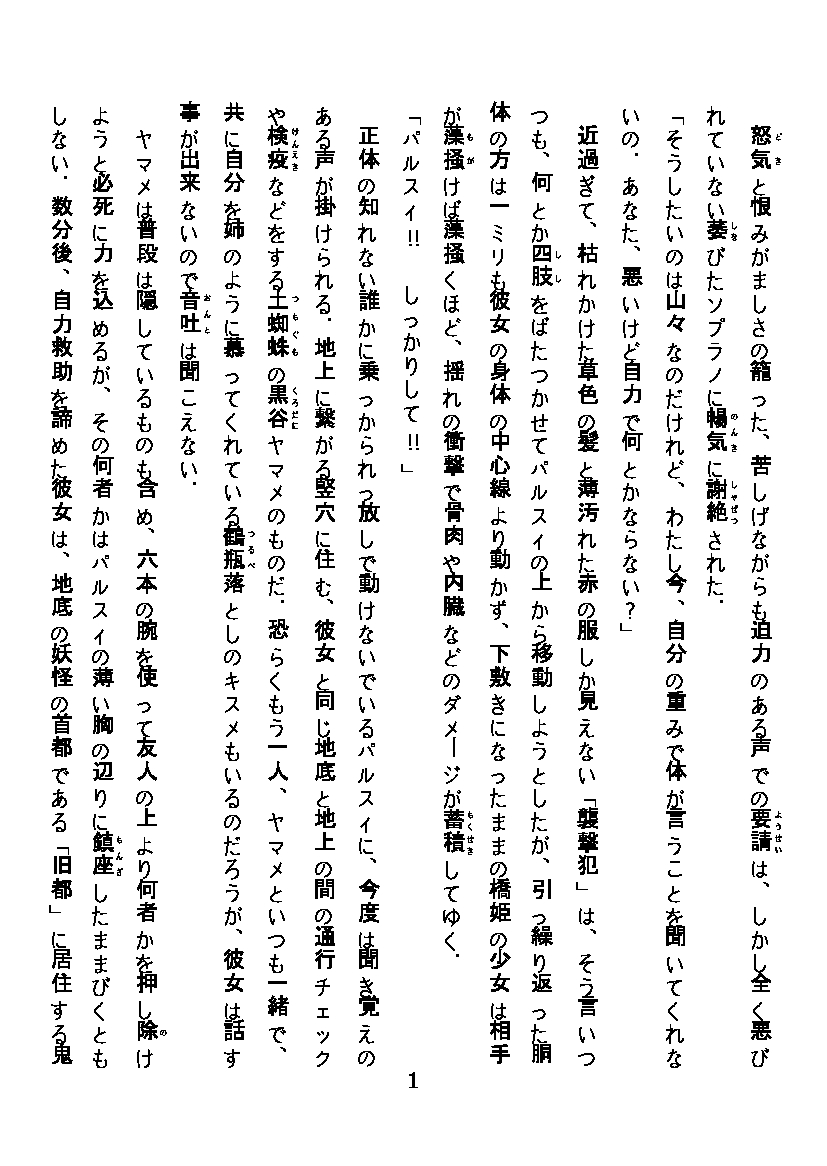 怒気と恨みがましさの籠った、苦しげながらも迫力のある声での要請は、しかし全く悪び
れていない萎びたソプラノに暢気に謝絶された．
「そうしたいのは山々なのだけれど、わたし今、自分の重みで体が言うことを聞いてくれな
いの．あなた、悪いけど自力で何とかならない？」
近過ぎて、枯れかけた草色の髪と薄汚れた赤の服しか見えない「襲撃犯」は、そう言いつ
つも、何とか四肢をばたつかせてパルスィの上から移動しようとしたが、引っ繰り返った胴
体の方は一ミリも彼女の身体の中心線より動かず、下敷きになったままの橋姫の少女は相手
が藻掻けば藻掻くほど、揺れの衝撃で骨肉や内臓などのダメージが蓄積してゆく．
「パルスィ!!　しっかりして!!」
正体の知れない誰かに乗っかられっ放しで動けないでいるパルスィに、今度は聞き覚えの
ある声が掛けられる．地上に繋がる竪穴に住む、彼女と同じ地底と地上の間の通行チェック
や検疫などをする土蜘蛛の黒谷ヤマメのものだ．恐らくもう一人、ヤマメといつも一緒で、
共に自分を姉のように慕ってくれている鶴瓶落としのキスメもいるのだろうが、彼女は話す
事が出来ないので音吐は聞こえない．
ヤマメは普段は隠しているものも含め、六本の腕を使って友人の上より何者かを押し除け
ようと必死に力を込めるが、その何者かはパルスィの薄い胸の辺りに鎮座したままびくとも
しない．数分後、自力救助を諦めた彼女は、地底の妖怪の首都である「旧都」に居住する鬼
1